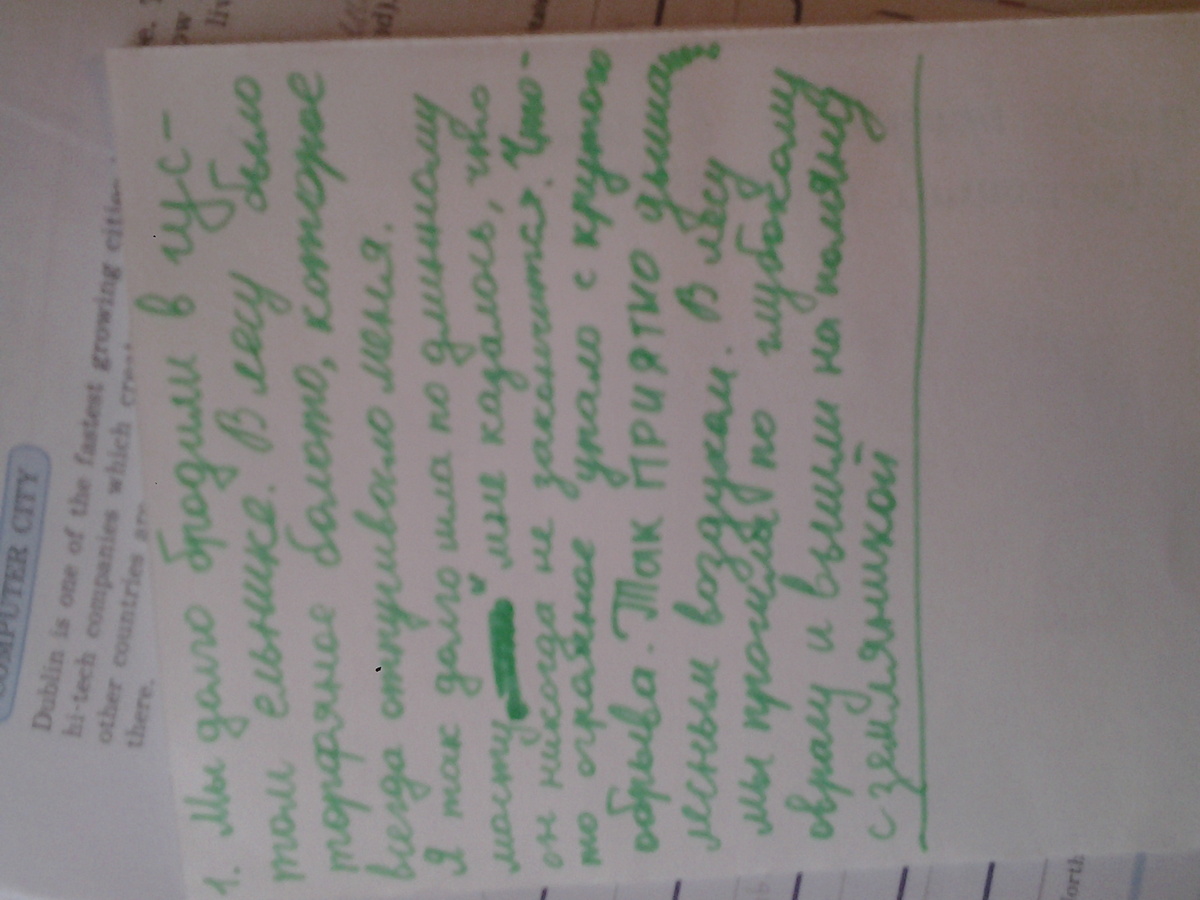 COMPUTER CITY
Dublin is one of the fastest growing cities
hi-tech companies which
other countries are
there.
1. Мы долго бродили в гус-
том ельнике. В лесу было
торфяное болото, которое
всегда отпугивало меня.
Я так долго шла по длинному
мосту мне кадалось, что
он никогда не закончится. Что-
то огромное упало с крутого
обрыва. Так ПРИЯТНО дышать
лесным воздухом. В лесу
мы прошлись по глубокому
оврагу и вышли на поляну
с земляникой